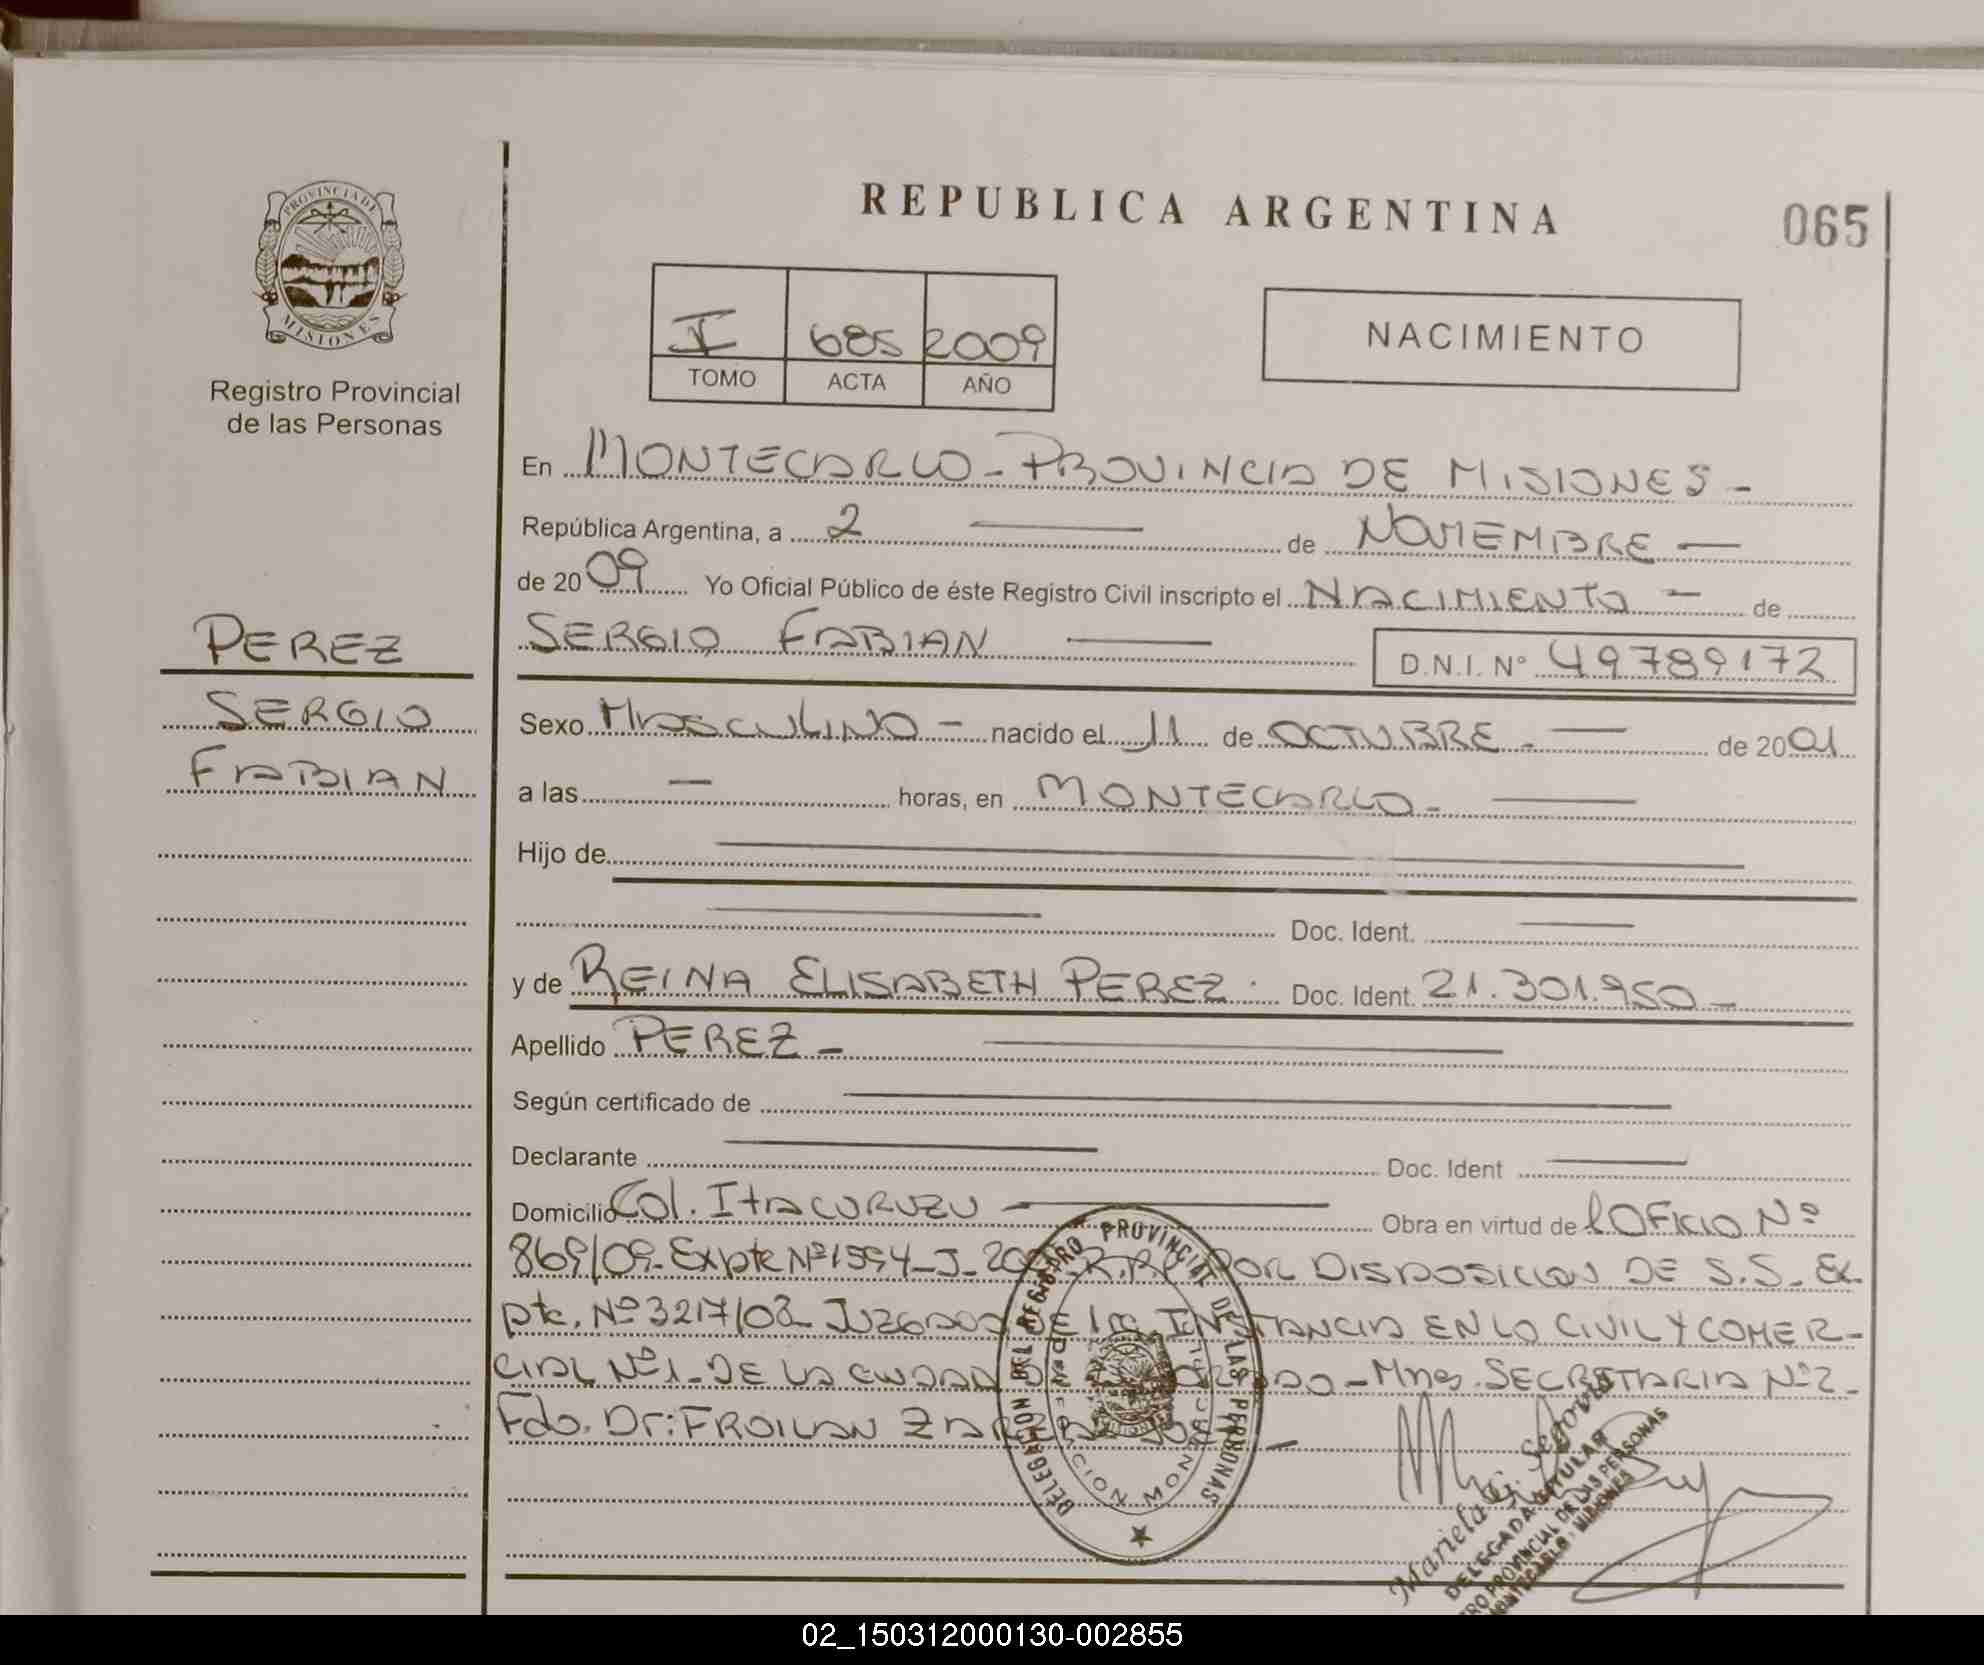 PROVINCIA DE
MISIONES
Registro Provincial
de las Personas
REPUBLICA ARGENTINA
065
I 685 2009
TOMO ACTA AÑO
NACIMIENTO
En MONTECARLO - PROVINCIA DE MISIONES -
República Argentina, a 2 — de NOVIEMBRE —
de 2009 Yo Oficial Público de éste Registro Civil inscripto el NACIMIENTO - de
SERGIO FABIAN — D.N.I. Nº 49789172
PEREZ
SERGIO
FABIAN
Sexo MASCULINO - nacido el 11 de OCTUBRE - — de 2001
a las — horas, en MONTECARLO - —
Hijo de —
— Doc. Ident. —
y de REINA ELISABETH PEREZ. Doc. Ident. 21.301.950 -
Apellido PEREZ - —
Según certificado de —
Declarante — Doc. Ident —
Domicilio Col. ITACURUZU — Obra en virtud de OFICIO Nº
869/09- Expte Nº 1594-J- R.P. POR DISPOSICION DE S.S. EX
pte. Nº 3217/08 JUZGADO DE 1ra INSTANCIA EN LO CIVIL Y COMER-
CIAL Nº1- DE LA CIUDAD - Mnes. SECRETARIA Nº2-
Fdo. Dr: FROILAN —
DELEGACION DEL REGISTRO PROVINCIAL DE LAS PERSONAS
Mariela G. Segovia
DELEGADA TITULAR
REGISTRO PROVINCIAL DE LAS PERSONAS
MONTECARLO - MISIONES
02_150312000130-002855